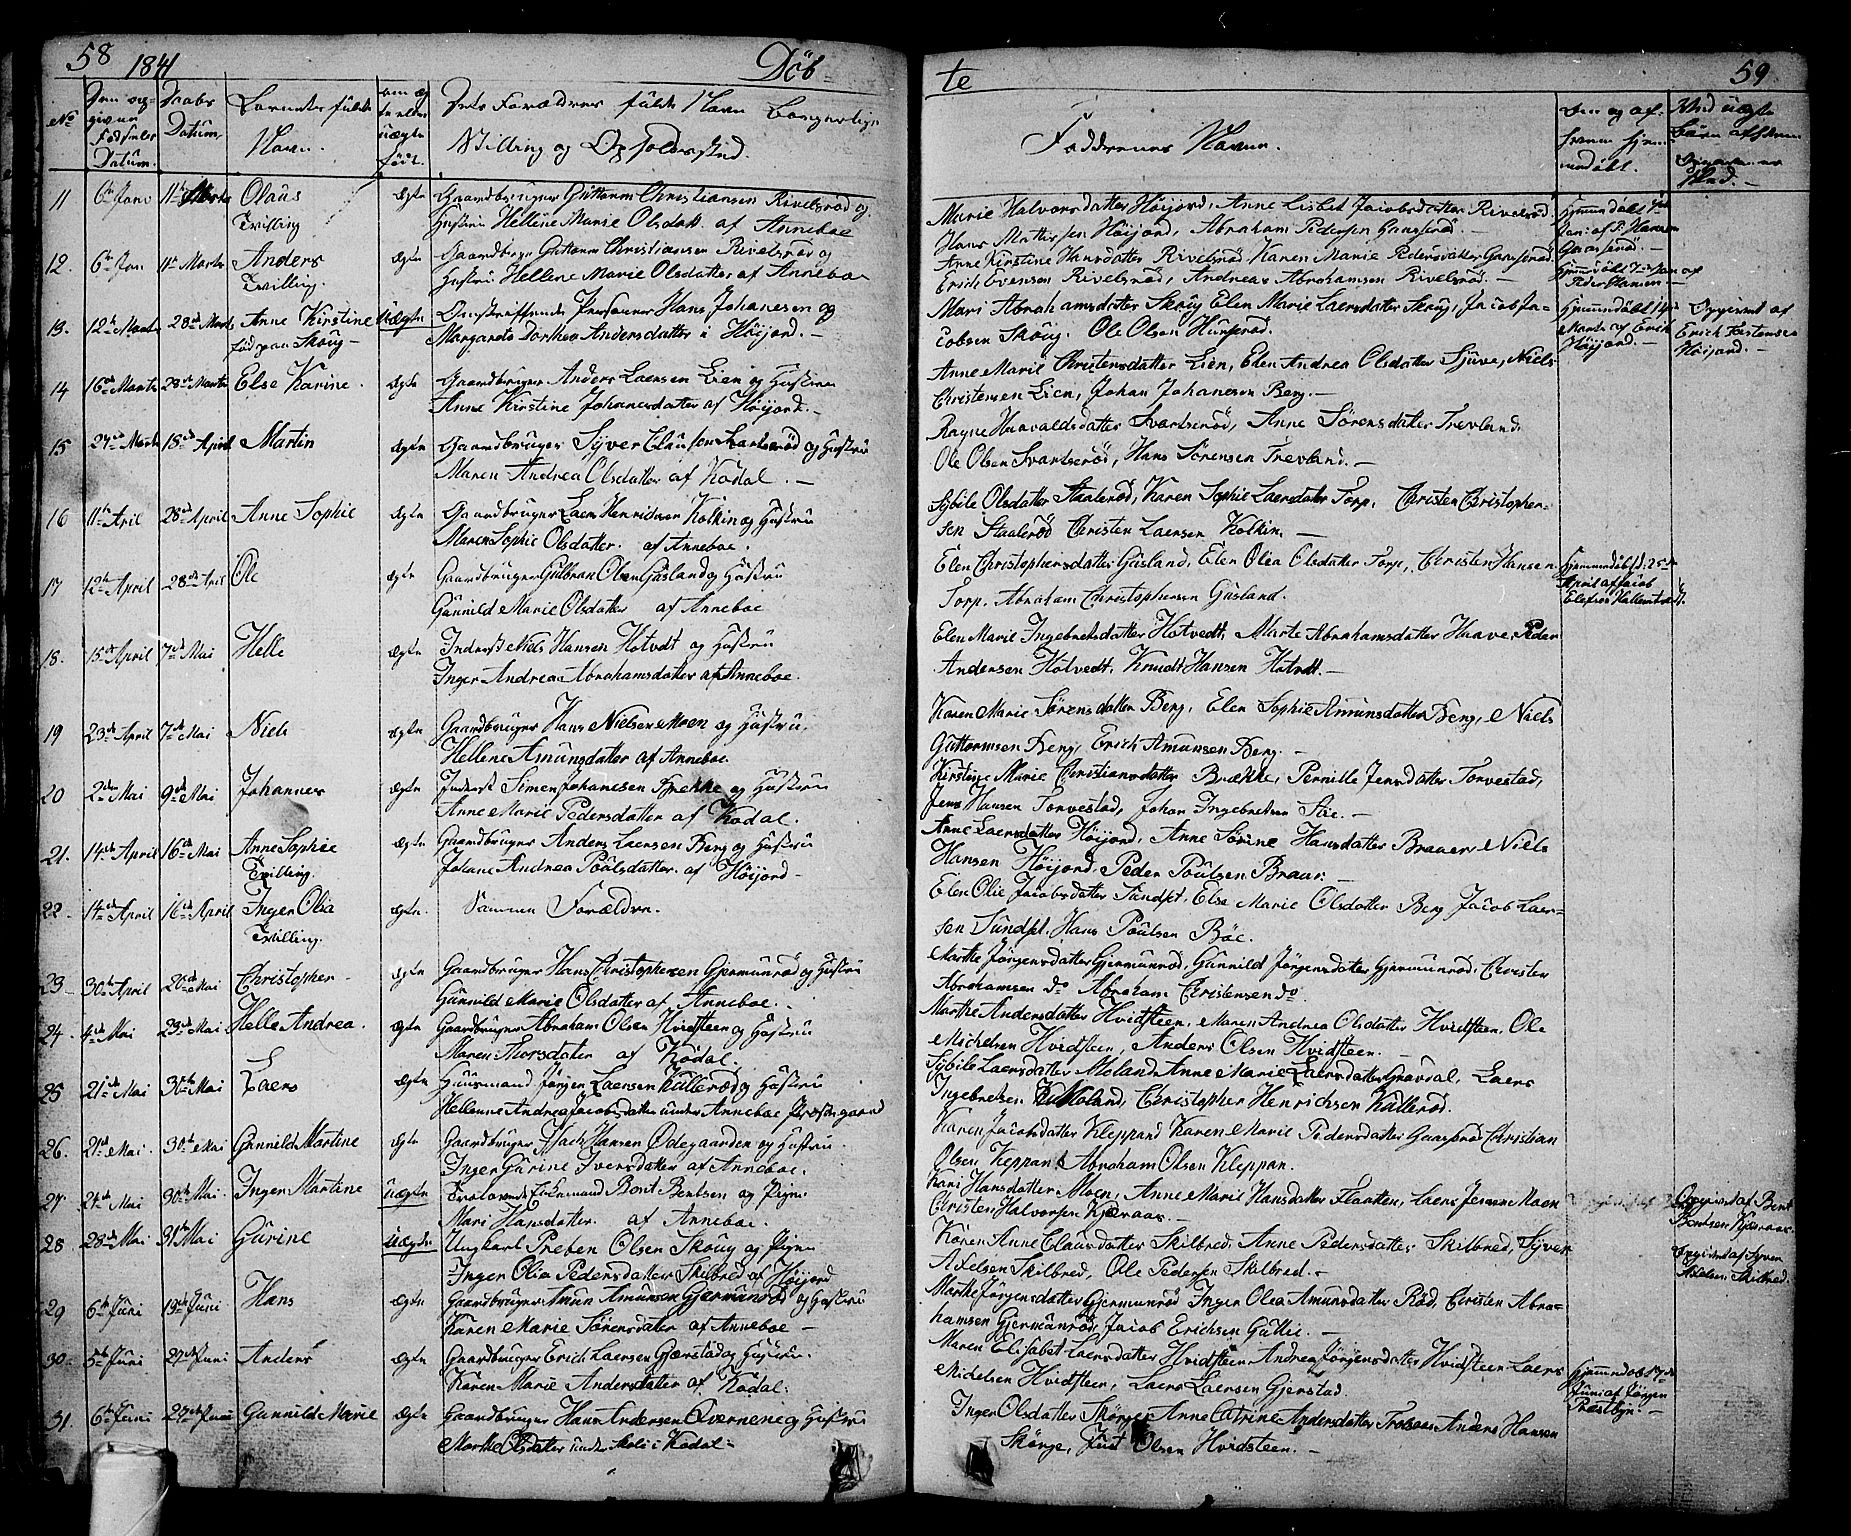 58 1841 Döb-
te 59
No
Datum.
Datum.
Navn.
født.
Stilling og Opholdssted.
Faddernes Navne.
11 6te Jan 11te Marts Olaus ægte Gaardbruger Guttorm Christiansen Rivelsrød og
Tvilling Hustru Hellene Marie Olsdatt. af Anneboe
Marie Halvorsdatter Höijord, Anne Lisbet Jacobsdatter Rivelsrød
Hans Mathesen Höijord, Abraham Pedersen Gaaserød.
12. 6te Jan 11te Marts Anders ægte Gaardbruger Guttorm Christiansen Rivelsrød og
Tvilling. Hustru Hellene Marie Olsdatter af Anneboe
Anne Kirstine Hansdatter Rivelsrød Karen Marie Pedersdatter Gaaserød
Erich Evensen Rivelsrød, Andreas Abrahamsen Rivelsrød.
Peder Hansen
13. 12te Marts 28de Marts Anne Kirstine uægte Omstreiffende Personer Hans Johanesen og
født paa Skoug Margarete Dorthea Andersdatter i Höijord.
Mari Abrahamsdatter Skoug Elen Marie Laersdatter Skoug, Jacob Ja-
cobsen Skoug. Ole Olsen
Marts af Erich
Höijord.
Opgivet af
Erich Torstensen
Höijord.
14 16de Marts 28de Marts Else Karine. ægte Gaardbruger Anders Laersen Lien og Hustru
Anne Kirstine Johanesdatter af Höijord.
Anne Marie Christensdatter Lien, Elen Andrea Olsdatter Sjuve, Niels
Christensen Lien, Johan Johanesen Berg.
15 27de Marts 18de April Martin ægte Gaardbruger Syver Clausen Svartserød og Hustru
Maren Andrea Olsdatter af Kodal.
Ragne Hansvaldsdatter Svartserød, Anne Sörensdatter Trevland.
Ole Olsen Svartserød, Hans Sörensen Trevland.
16 11te Aril 28de April Anne Sophie ægte Gaardbruger Laers Henriksen Kolkin og Hustru
Maren Sophie Olsdatter. af Anneboe.
Sybile Olsdatter Staalerød, Karen Sophie Laersdatter Torp. Christen Christopher-
sen Staalerød Christen Laersen Kolkin.
17 12te April 28de Aril Ole ægte Gaardbruger Gulbran Olsen Gusland og Hustru
Gunnild Marie Olsdatter af Anneboe
Elen Christophersdatter Gusland, Elen Olea Olsdatter Torp, Christen Hansen
Torp. Abraham Christophersen Gusland.
April af Jacob
18. 15de April 7de Mai Helle ægte Inderst Niels Hansen Hotvedt og Hustru
Inger Andrea Abrahamsdatter af Anneboe.
Elen Marie Ingebretsdatter Hotvedt, Marte Abrahamsdatter Haave, Peder
Andersen Hotvedt. Knudt Hansen Hotvedt.
19 23de April 7de Mai Niels ægte Gaardbruger Hans Nielsen Moen og Hustru
Hellene Amunsdatter af Anneboe.
Karen Marie Sörensdatter Berg, Elen Sophie Amunsdatter Berg, Niels
Guttormsen Berg, Erich Amunsen Berg.
20 2den Mai 9de Mai Johannes ægte Inderst Simen Johanesen Brekke og Hustru
Anne Marie Pedersdatter af Kodal.
Kirstine Marie Christiansdatter Brække, Pernille Jensdatter Torvestad,
Jens Hansen Torvestad, Johan Ingebretsen Söe.
21. 14de April 16de Mai Anne Sophie ægte Gaardbruger Anders Laersen Berg og Hustru
Tvilling. Johane Andrea Poulsdatter af Höijord
Anne Laersdatter Höijord, Anne Sörine Hansdatter Brauer, Niels
Hansen Höijord, Peder Poulsen Brauer.
22. 14de April 16de April Inger Olea ægte. Samme Forældre.
Tvilling.
Elen Olie Jacobsdatter Sundset, Else Marie Olsdatter Berg Jacob Laer-
sen Sundset. Hans Poulsen Böe.
23 30te April 20de Mai Christopher ægte Gaardbruger Hans Christophersen Gjermunrød og Hustru
Gunnild Marie Olsdatter af Anneboe.
Marthe Jörgensdatter Gjermunrød, Gunnild Jörgensdatter Gjermunrød, Christen
Abrahamsen do Abraham Christensen do.
24. 4de Mai 23de Mai Helle Andrea. ægte Gaardbruger Abraham Olsen Hvidsteen og Hustru
Maren Thorsdatter af Kodal.
Marthe Andersdatter Hvidsteen, Maren Andrea Olsdatter Hvidsteen, Ole
Michelsen Hvidsteen, Anders Olsen Hvidsteen.
25 21de Mai 30te Mai Laers ægte Huusmand Jörgen Laersen Kullerød og Hustru
Hellenne Andrea Jacobsdatter under Anneboe Præstegaard
Sybile Laersdatter Moland Anne Marie Laersdatter Gravdal, Laers
Ingebretsen Moland, Christopher Henrichsen Kullerød.
26. 21de Mai. 30te Mai Gunnild Martine ægte Gaardbruger Isach Hansen Ødegaarden og Hustru
Inger Gurine Iversdatter af Anneboe.
Karen Jacobsdatter Kleppan Karen Marie Pedersdatter Gaaserød Christian
Olsen Keppan Abraham Olsen Kleppan.
27 24de Mai 30te Mai. Inger Martine uægte Berit Bentsen og Pige
Mari Hansdatter. af Anneboe.
Kari Hansdatter Moen, Anne Marie Hansdatter Flaatten, Laers Jensen Moen
Christen Halvorsen Kjæraas.
Opgivet af Bent
Bentsen Kjæraas
28 28de Mai 31 Mai Gurine uægte Ungkarl Preben Olsen Skoug og Pige
Inger Olea Pedersdatter Skilbred af Höijord
Karen Anne Clausdatter Skilbred, Anne Pedersdatter Skilbred, Syver
Axelsen Skilbred, Ole Pedersen Skilbred.
Opgivet af Syver
Axelsen Skilbred.
29 6te Juni 13de Juni Hans ægte Gaardbruger Amun Amunsen Gjermunrød og Hustru
Karen Marie Sörensdatter af Anneboe
Marthe Jörgensdatter Gjermunrød Inger Olea Amunsdatter Rød, Christen Abra-
hamsen Gjermunrød, Jacob Erichsen Guttie.
30 5te Juni 27de Juni Anders ægte Gaardbruger Erich Laersen Gjærstad og Hustru
Karen Marie Andersdatter af Kodal.
Maren Elisabet Laersdatter Hvidsteen Andrea Jörgensdatter Hvidsteen Laers
Michelsen Hvidsteen, Laers Laersen Gjerstad.
Juni af Jörgen
Præstbye.
31 6te Juni 27de Juni Gunnild Marie ægte Gaardbruger Hans Andersen Qvernene og Hustru
Marthe Olsdatter i Kodal
Inger Olsdatter Skörge Anne Catrine Andersdatter Anders Hansen
Skörge, Just Olsen Hvidsteen.